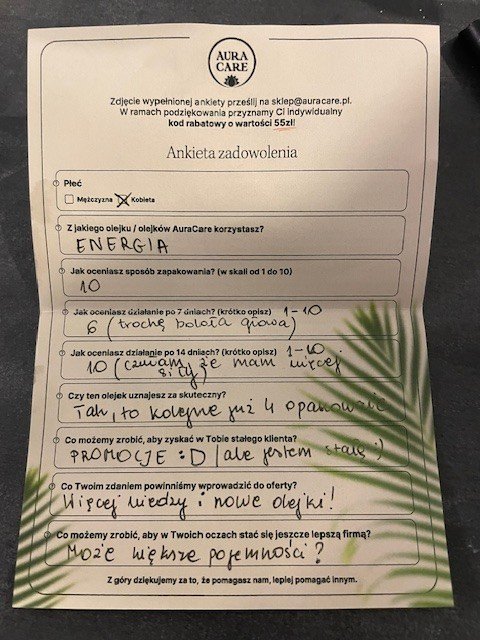 AURA
CARE
Zdjęcie wypełnionej ankiety prześlij na sklep@auracare.pl.
W ramach podziękowania przyznamy Ci indywidualny
kod rabatowy o wartości 55zł!
Ankieta zadowolenia
Płeć
Mężczyzna Kobieta
Z jakiego olejku / olejków AuraCare korzystasz?
ENERGIA
Jak oceniasz sposób zapakowania? (w skali od 1 do 10)
10
Jak oceniasz działanie po 7 dniach? (krótko opisz) 1-10
6 (trochę bolała głowa)
Jak oceniasz działanie po 14 dniach? (krótko opisz) 1-10
10 (czułam, że mam więcej
siły)
Czy ten olejek uznajesz za skuteczny?
Tak, to kolejne już 4 opakowanie
Co możemy zrobić, aby zyskać w Tobie stałego klienta?
PROMOCJE :D (ale jestem stała :)
Co Twoim zdaniem powinniśmy wprowadzić do oferty?
Więcej wiedzy i nowe olejki!
Co możemy zrobić, aby w Twoich oczach stać się jeszcze lepszą firmą?
Może większe pojemności?
Z góry dziękujemy za to, że pomagasz nam, lepiej pomagać innym.